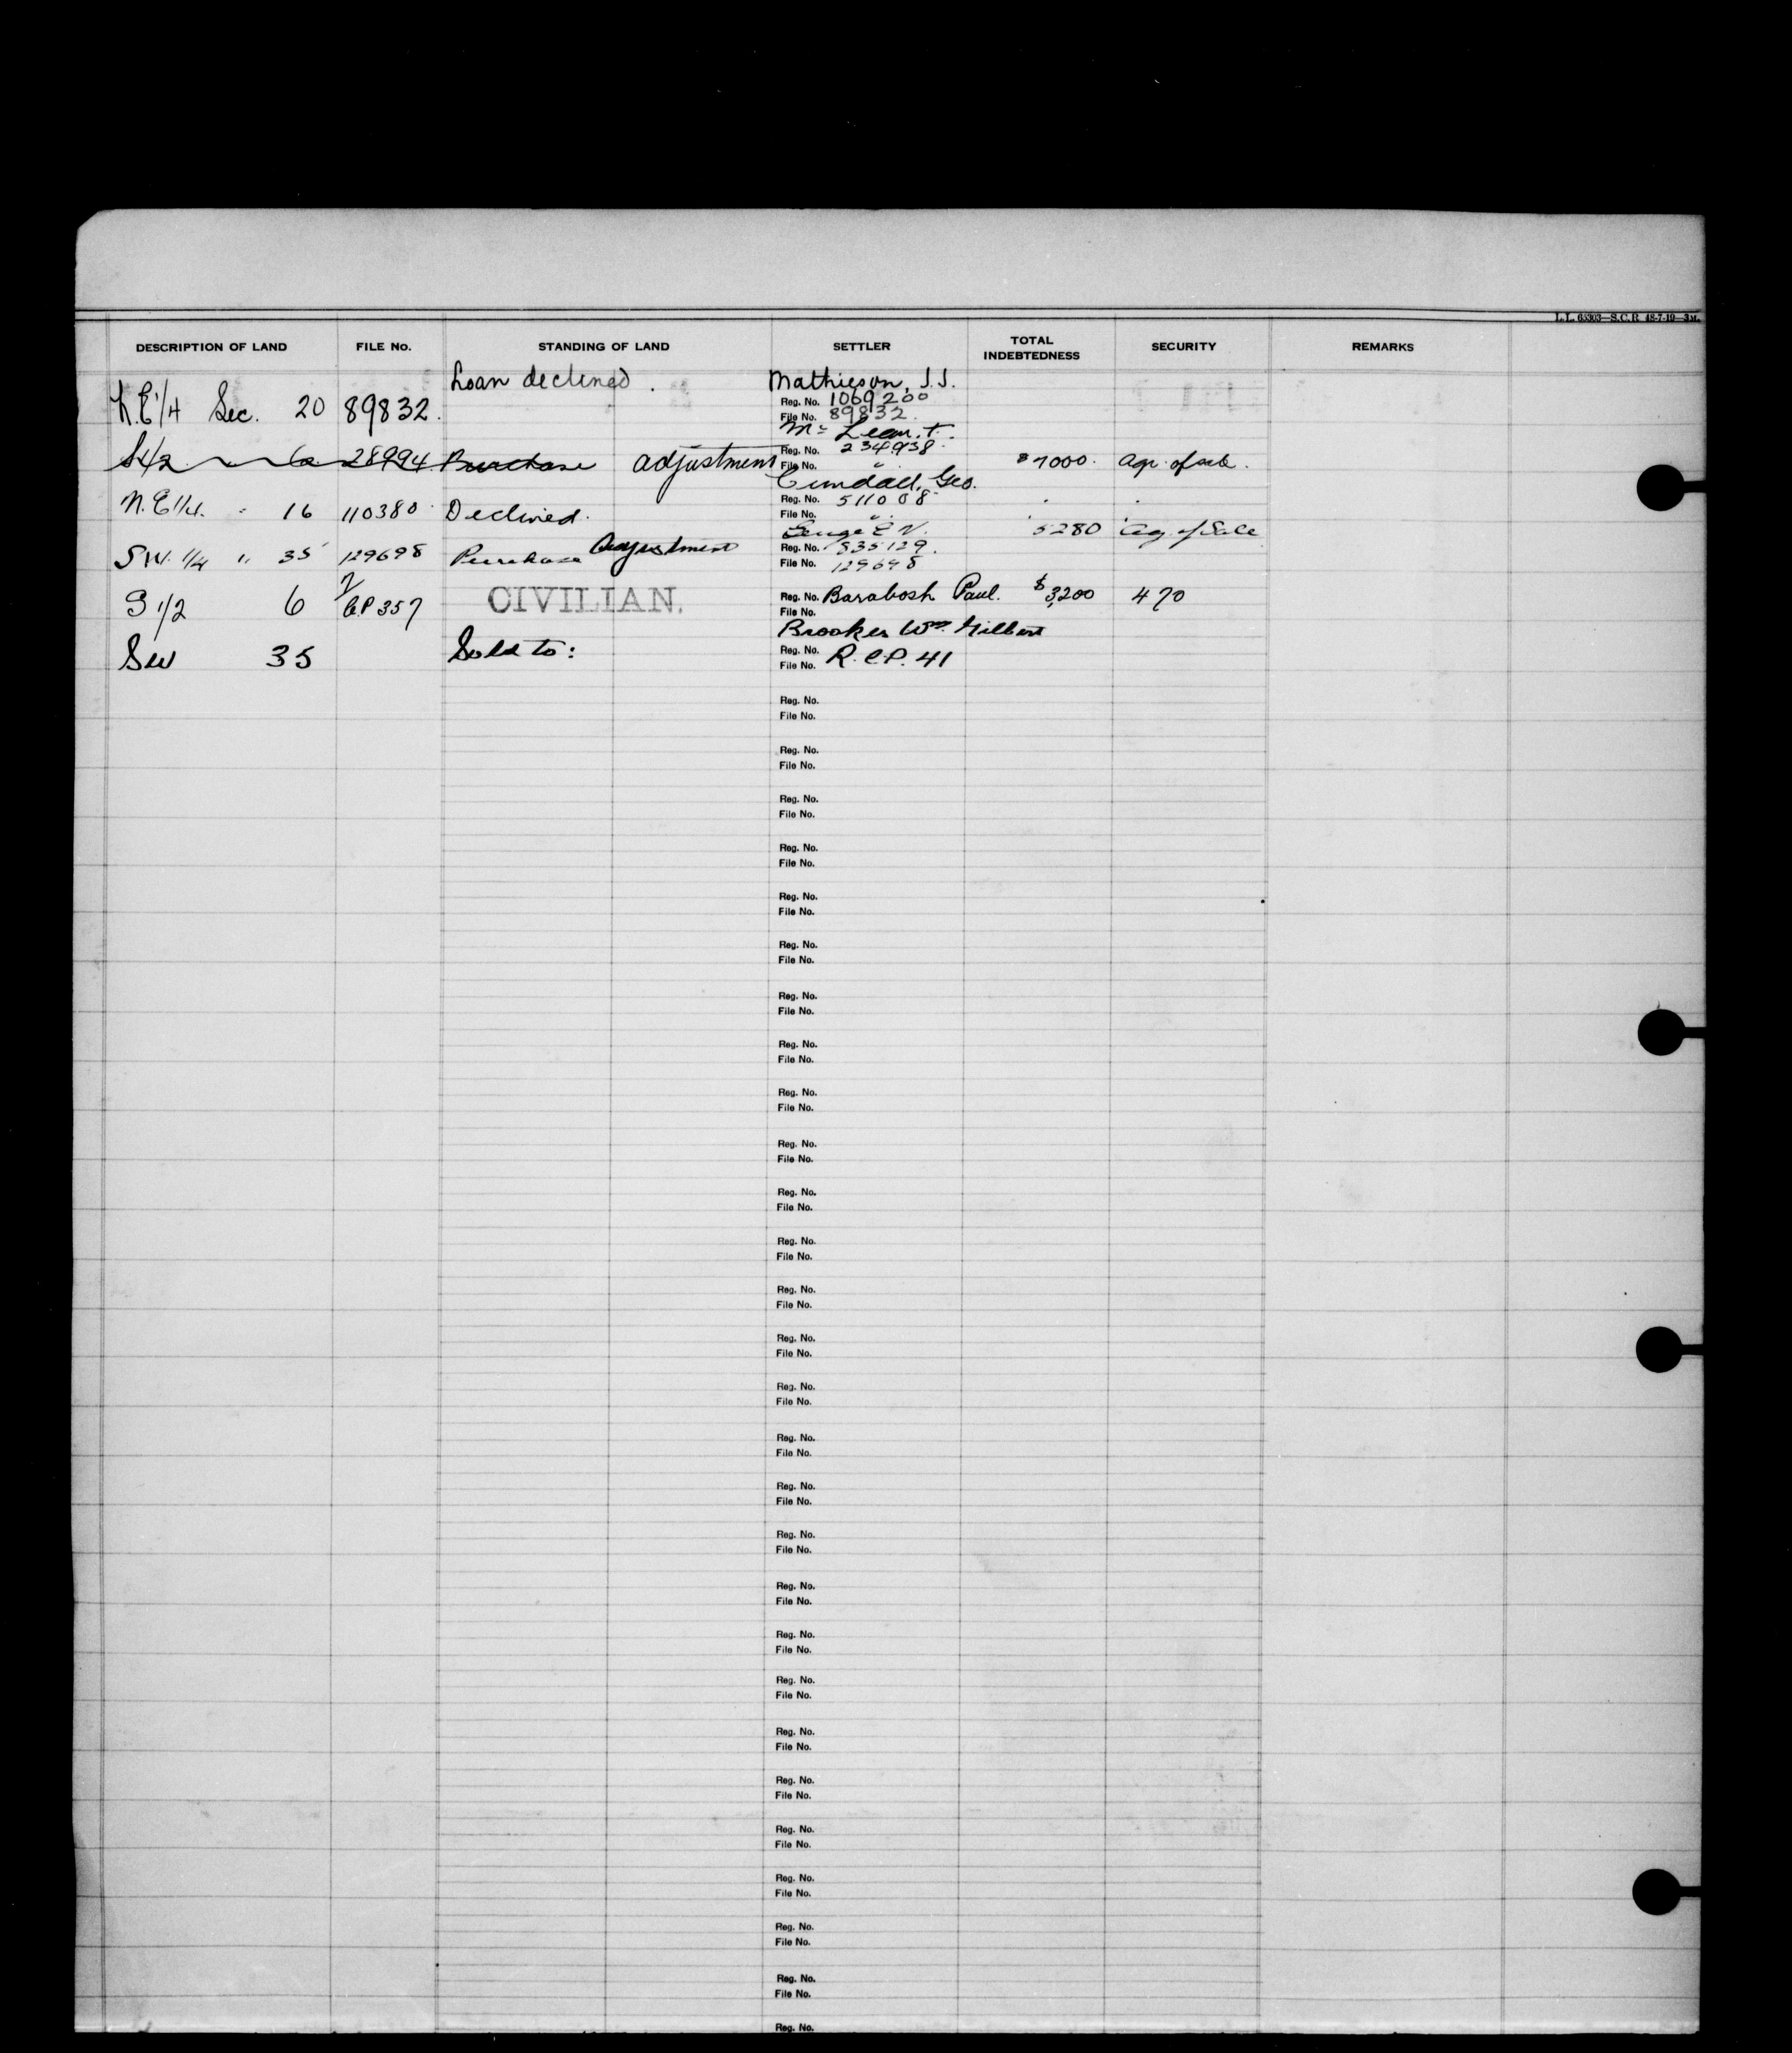 L.L. 65303—S.C.R. 48-7-19—3M.
DESCRIPTION OF LAND FILE No. STANDING OF LAND SETTLER TOTAL INDEBTEDNESS SECURITY REMARKS
Loan declined. Mathieson, J.J.
N.E1/4 Sec. 20 89832. Reg. No. 1069200
File No. 89832
Mc Lean, T.
S1/2 " 6 28994 Purchase adjustment Reg. No. 234938 $7000. Agr. of sale.
File No. "
Cundall, Geo.
N.E1/4. " 16 110380 Declined. Reg. No. 511008
File No. "
E V. 5280 Ag. of Sale
SW. 1/4 " 35 129698 Purchase Adjustment Reg. No. 835129.
File No. 129698
S 1/2 6 C.P 357 CIVILIAN. Reg. No. Barabosh Paul. $3,200 470
File No.
Brooker Wm. Gilbert
SW 35 Sold to: Reg. No.
File No. R.C.P. 41
Reg. No.
File No.
Reg. No.
File No.
Reg. No.
File No.
Reg. No.
File No.
Reg. No.
File No.
Reg. No.
File No.
Reg. No.
File No.
Reg. No.
File No.
Reg. No.
File No.
Reg. No.
File No.
Reg. No.
File No.
Reg. No.
File No.
Reg. No.
File No.
Reg. No.
File No.
Reg. No.
File No.
Reg. No.
File No.
Reg. No.
File No.
Reg. No.
File No.
Reg. No.
File No.
Reg. No.
File No.
Reg. No.
File No.
Reg. No.
File No.
Reg. No.
File No.
Reg. No.
File No.
Reg. No.
File No.
Reg. No.
File No.
Reg. No.
File No.
Reg. No.